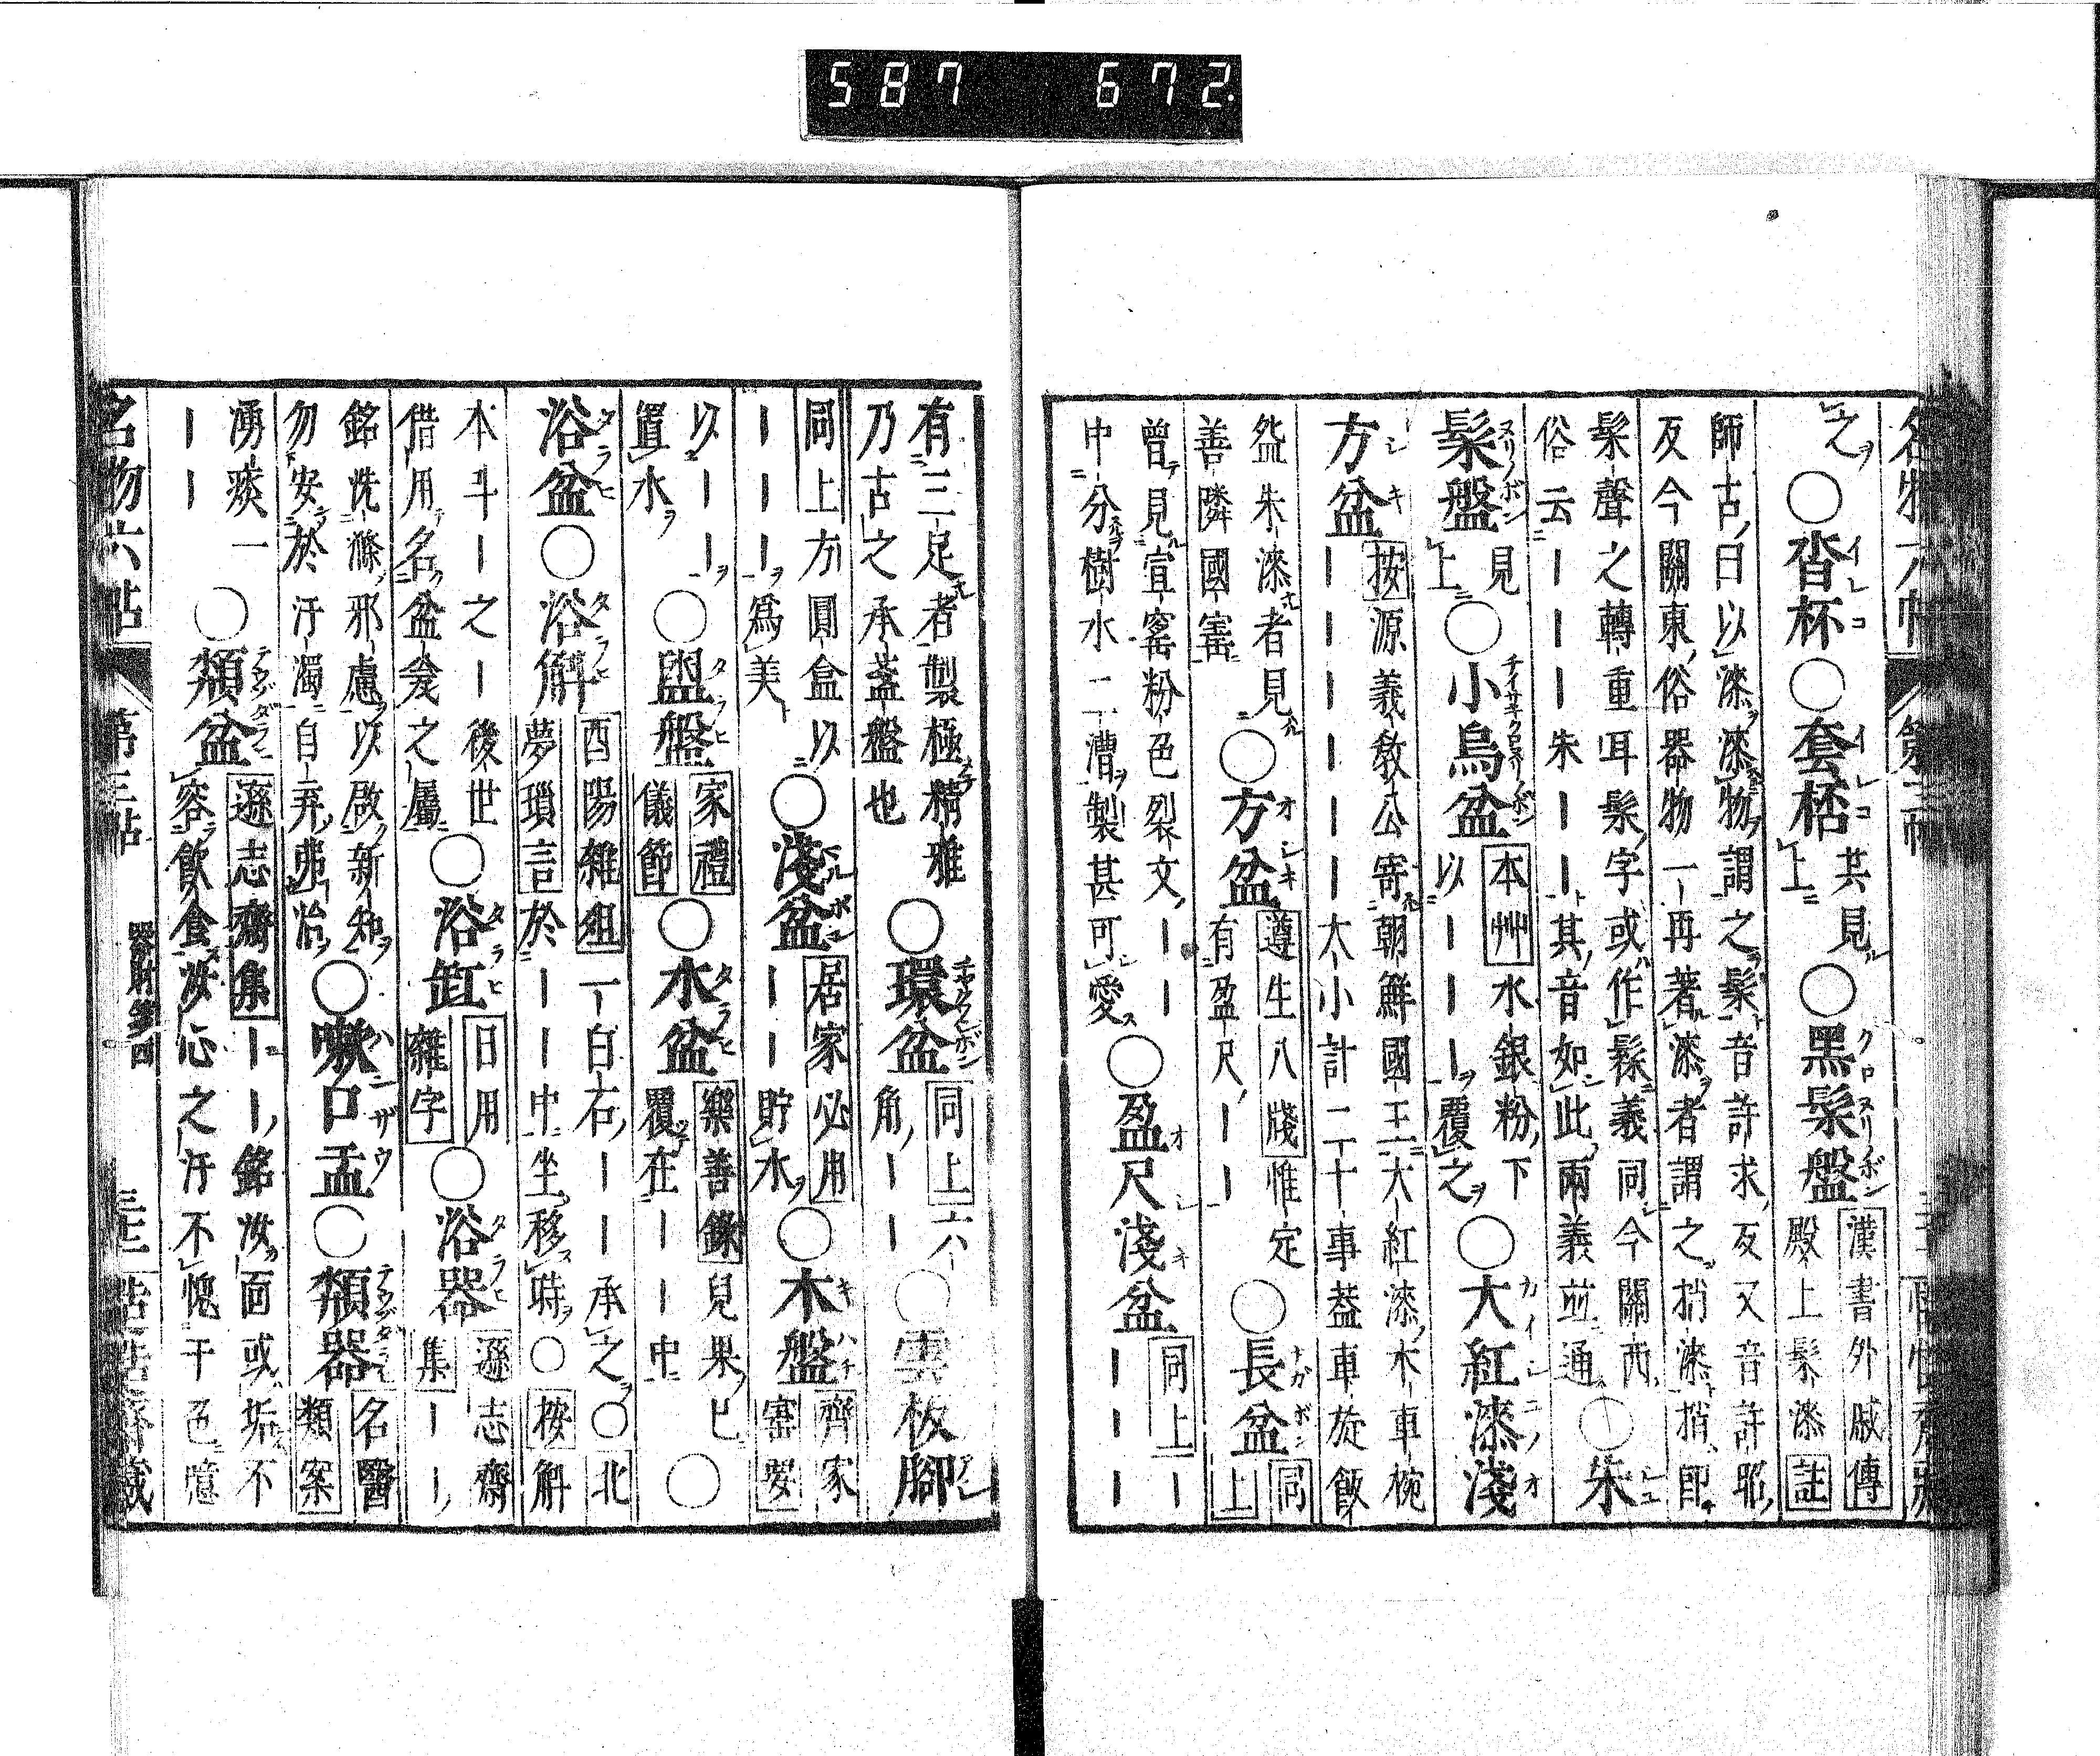 587 672
名物六帖 第三帖
之〇沓杯〇套桮共見上〇黑髹盤漢書外戚傳殿上髹漆註
師古曰以漆漆物謂之髹音許求反又音許昭
反今關東俗器物一再著漆者謂之捎漆捎即
髹聲之轉重耳髹字或作髤義同今關西
俗云｜｜｜朱｜｜其音如此兩義並通〇朱
髹盤見上〇小烏盆本艸水銀粉下以｜｜｜覆之〇大紅漆淺
方盆按源義教公寄朝鮮國王大紅漆木車椀
｜｜｜｜｜｜大小計二十事蓋車旋飯
朱漆者見
善隣國寚〇方盆遵生八牋惟定有盈尺｜｜〇長盆同上
曾見宣窰粉色裂文｜｜
中分樹水二漕製甚可愛〇盈尺淺盆同上｜｜｜｜
有三足者製極精雅
乃古之承盞盤也〇環盆同上六角｜｜〇雲板脚
同上方圓盒以
｜｜｜｜為美〇淺盆居家必用｜｜貯水〇木盤齊家寚要
以｜｜｜
置水〇盥盤家禮儀節〇水盆樂善錄兒果已覆在｜｜中〇
浴盆〇浴斛酉陽雜俎一白石｜｜承之〇北
夢瑣言於｜｜中坐移時〇按斛
本斗｜之｜後世
借用名盆瓮之屬〇浴缸日用雜字〇浴器遜志齋集｜｜
銘洗滌邪慮以啟新知
勿安於汙濁自弃弗治〇嗽口盂〇頮器名醫類案
湧痰一
｜｜〇頮盆遜志齋集｜｜｜銘汝面或垢不
容飲食汝心之汙不愧于色噫
名物六帖 第三帖 器財箋四